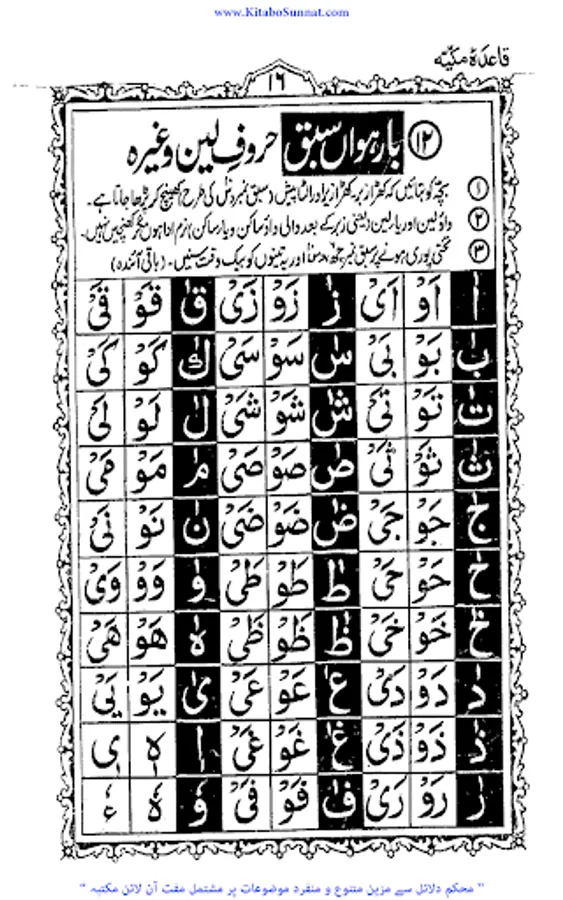 www.KitaboSunnat.com
قاعدہ مکیّہ
۱۶
۱۲ بارہواں سبق حروفِ لین وغیرہ
۱ بچّہ کو بتائیں کہ کھڑا زبر، کھڑا زیر اور الٹا پیش (سبق نمبر کی طرح) کھینچ کر پڑھا جاتا ہے۔
۲ واؤ لین اور یار لین (یعنی زبر کے بعد والی واؤ ساکن و یا رساکن) نرم ادا ہوں مگر کھینچیں نہیں۔
۳ تختی پوری ہونے پر سبق نمبر اور یہ تینوں کو بیک وقت سنیں۔ (باقی آئندہ)
اٰ اَوْ اَیْ زٰ زَوْ زَیْ قٰ قَوْ قَیْ
بٰ بَوْ بَیْ سٰ سَوْ سَیْ كٰ كَوْ كَیْ
تٰ تَوْ تَیْ شٰ شَوْ شَیْ لٰ لَوْ لَیْ
ثٰ ثَوْ ثَیْ صٰ صَوْ صَیْ مٰ مَوْ مَیْ
جٰ جَوْ جَیْ ضٰ ضَوْ ضَیْ نٰ نَوْ نَیْ
حٰ حَوْ حَیْ طٰ طَوْ طَیْ وٰ وَوْ وَیْ
خٰ خَوْ خَیْ ظٰ ظَوْ ظَیْ هٰ هَوْ هَیْ
دٰ دَوْ دَیْ عٰ عَوْ عَیْ یٰ یَوْ یَیْ
ذٰ ذَوْ ذَیْ غٰ غَوْ غَیْ اٖ هٖ یٖ
رٰ رَوْ رَیْ فٰ فَوْ فَیْ وٗ هٗ ءٗ
" محکم دلائل سے مزین متنوع و منفرد موضوعات پر مشتمل مفت آن لائن مکتبہ "